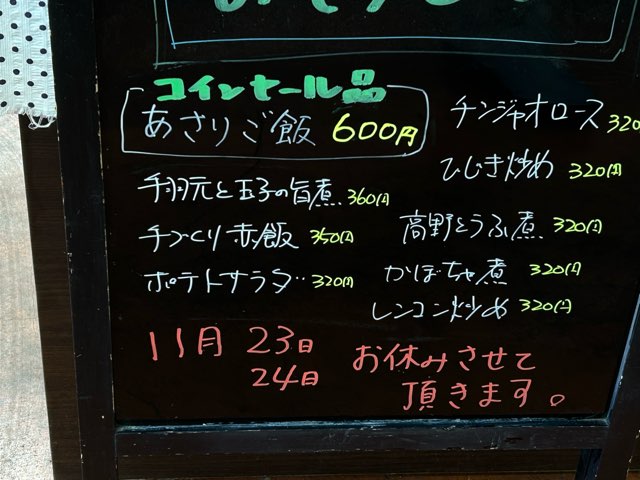 コインセール品
あさりご飯 600円
手羽元と玉子の旨煮 360円
手づくり赤飯 350円
ポテトサラダ 320円
チンジャオロース 320
ひじき炒め 320円
高野とうふ煮 320円
かぼちゃ煮 320円
レンコン炒め 320円
11月 23日
24日
お休みさせて
頂きます。